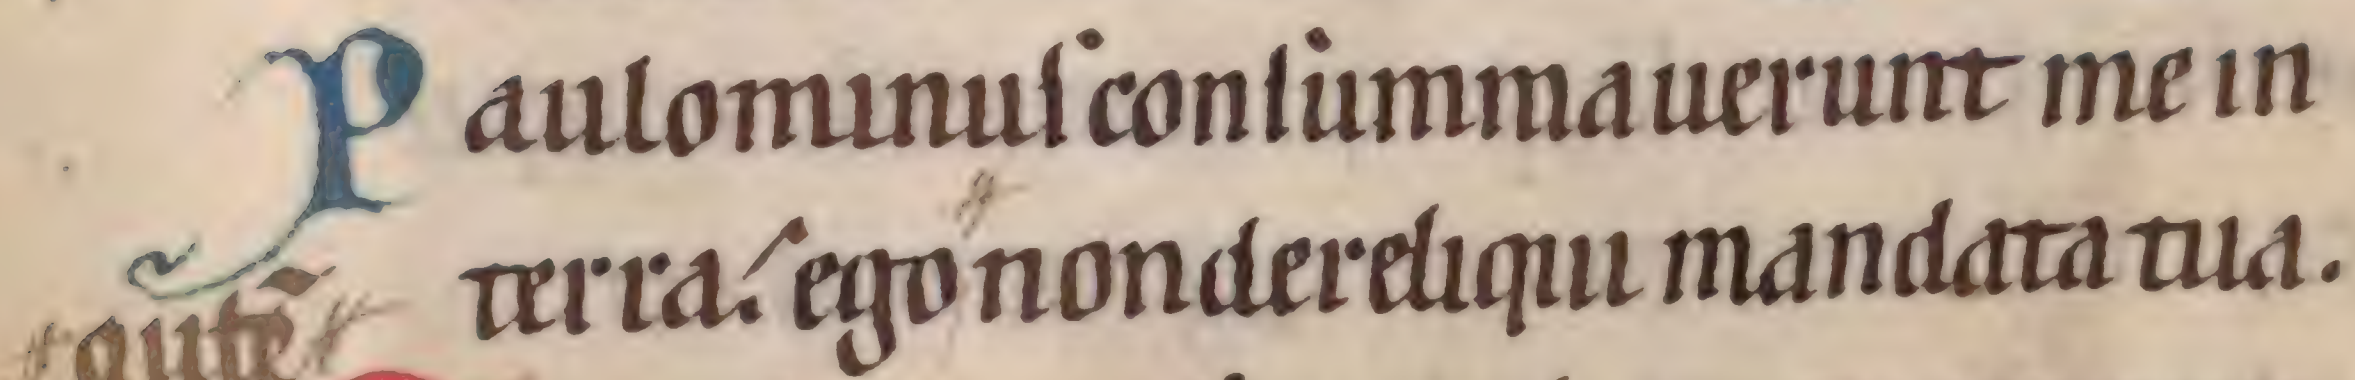 Paulominuſ conſummauerunt me in
terra. ego non dereliqui mandata tua.
autē